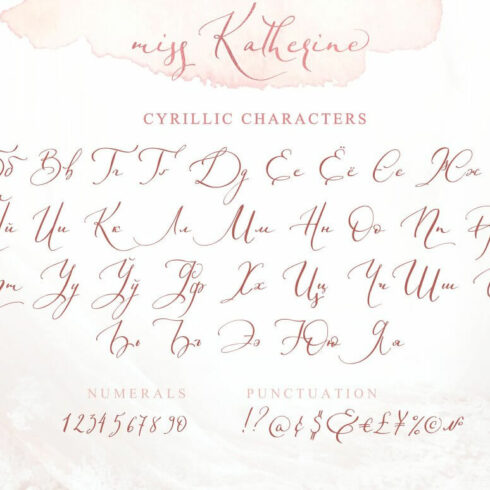 miss Katherine
CYRILLIC CHARACTERS
б Вв Гг Тт Дд Ее Ёё Єє Жж
й Ии Кк Лл Мм Нн Оо Пп
т Уу Ўў Фф Хх Цц Чч Шш
Ьь Ъъ Ээ Юю Яя
NUMERALS PUNCTUATION
1234567890 !?@¢$&€£¥%©№